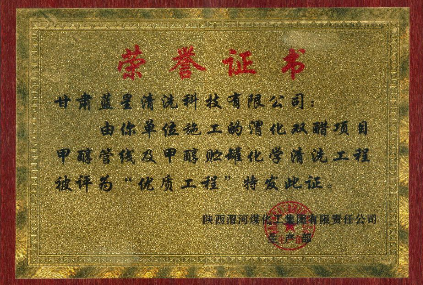 荣誉证书
甘肃蓝星清洗科技有限公司:
由你单位施工的渭化双醋项目
甲醇管线及甲醇贮罐化学清洗工程
被评为“优质工程”特发此证。
陕西渭河煤化工集团有限责任公司
生产部